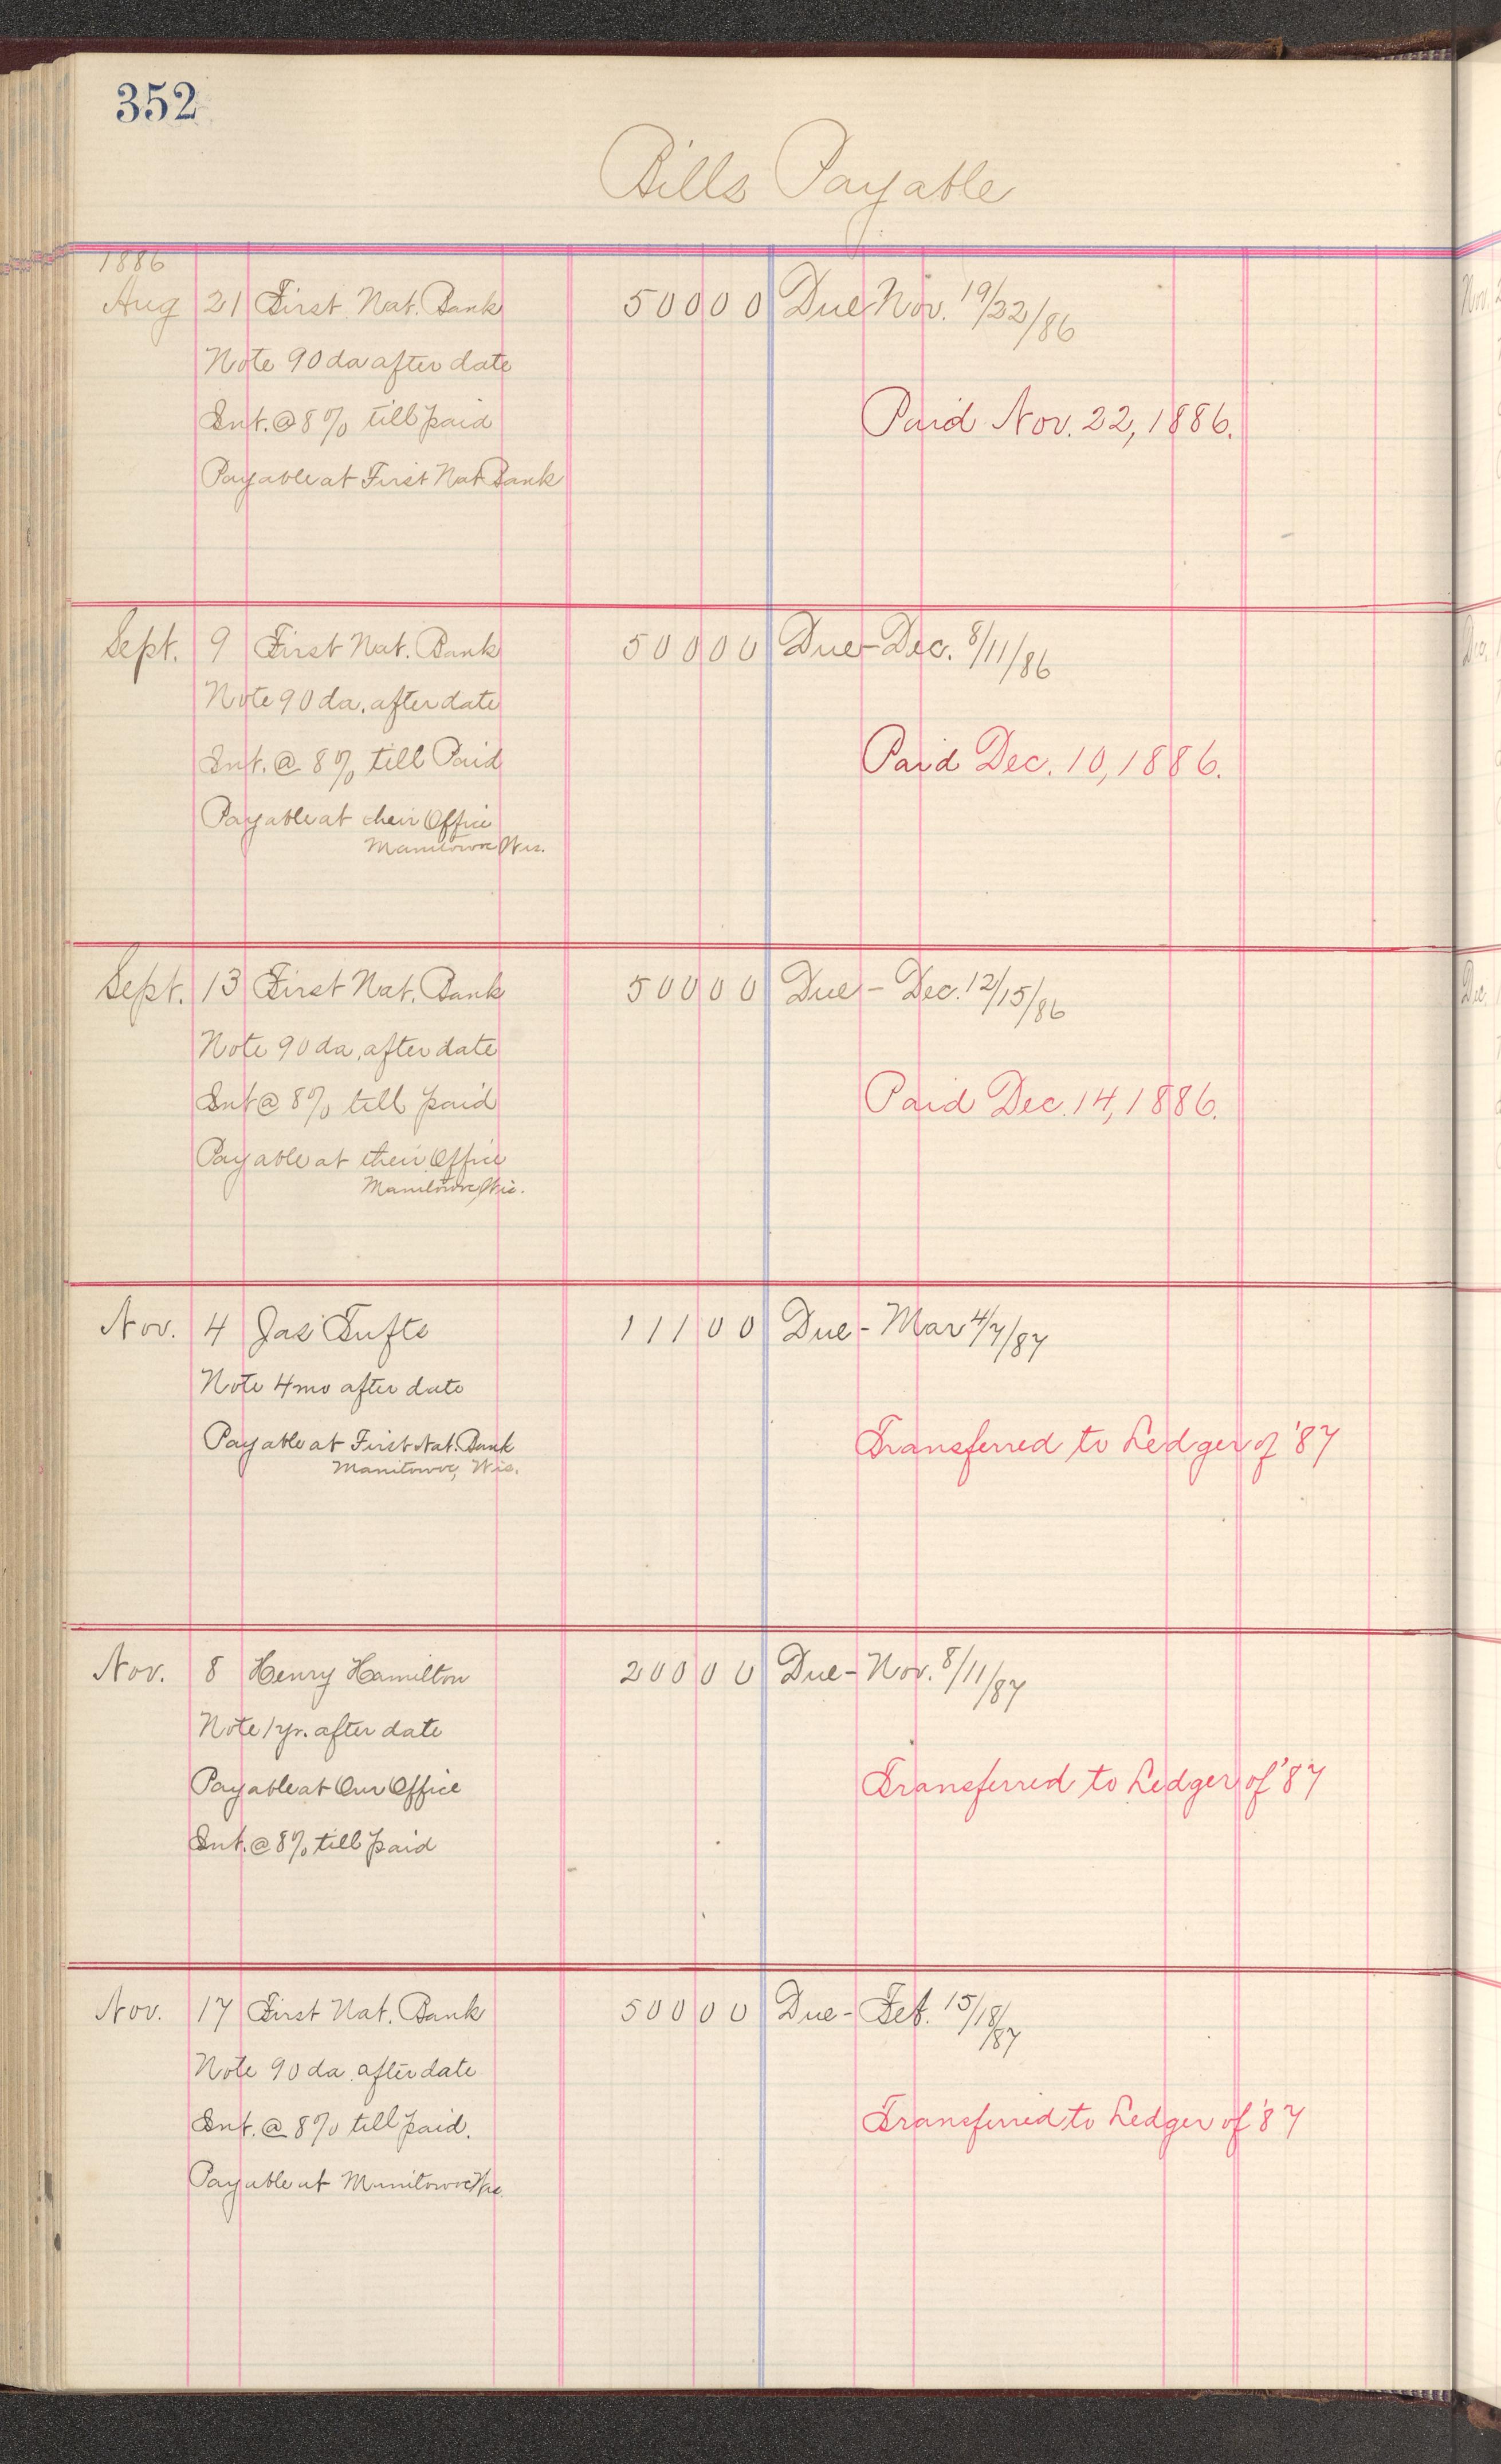 352
Bills Payable
1886
Aug 21 First Nat. Bank 500 00 Due Nov. 19/22/86
Note 90 da after date
Int. @ 8% till paid
Paid Nov. 22, 1886.
Payable at First Nat Bank
Sept. 9 First Nat. Bank 500 00 Due - Dec. 8/11/86
Note 90 da. after date
Int. @ 8% till Paid
Paid Dec. 10, 1886.
Payable at their Office
Manitowoc Wis.
Sept. 13 First Nat. Bank 500 00 Due - Dec. 12/15/86
Note 90 da, after date
Int @ 8% till paid
Paid Dec. 14, 1886.
Payable at their Office
Manitowoc, Wis.
Nov. 4 Jas Tufts 111 00 Due - Mar 4/7/87
Note 4 mo after date
Payable at First Nat. Bank
Manitowoc, Wis.
Transferred to Ledger of '87
Nov. 8 Henry Hamilton 200 00 Due - Nov. 8/11/87
Note 1 yr. after date
Payable at Our Office
Transferred to Ledger of '87
Int. @ 8% till paid
Nov. 17 First Nat. Bank 500 00 Due - Feb. 15/18/87
Note 90 da. after date
Int. @ 8% till paid.
Transferred to Ledger of '87
Payable at Manitowoc Wis.